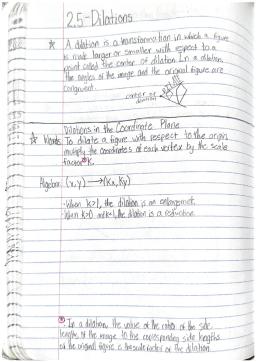 2.5-Dilations
★ A dilation is a transformation in which a figure
is made larger or smaller with respect to a
point called the center of dilation. In a dilation,
the angles of the image and the original figure are
congruent.
center of
dilation
Dilations in the Coordinate Plane
★ Words: To dilate a figure with respect to the origin,
multiply the coordinates of each vertex by the scale
factor K.
Algebra: (x,y) → (Kx, Ky)
-When K>1, the dilation is an enlargement.
-When K>0 and K<1, the dilation is a reduction.
In a dilation, the value of the ratio of the side
lengths of the image to the corresponding side lengths
of the original figure is the scale factor of the dilation